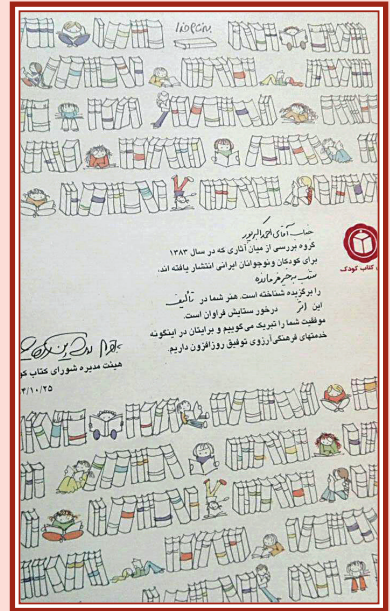 بنام خدا
جناب آقای اکبرپور
گروه بررسی از میان آثاری که در سال ۱۳۸۳
برای کودکان ونوجوانان ایرانی انتشار یافته اند،
را برگزیده شناخته است. هنر شما در تألیف
این اثر درخور ستایش فراوان است.
موفقیت شما را تبریک می گوییم و برایتان در اینگونه
خدمتهای فرهنگی آرزوی توفیق روزافزون داریم.
کتاب کودک
هیئت مدیره شورای کتاب کو
۳/۱۰/۲۵